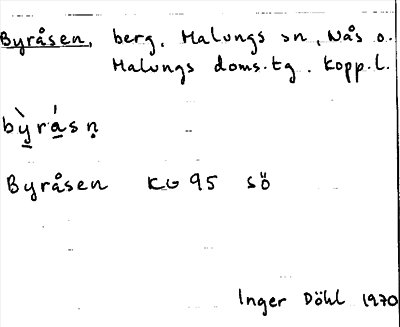 Byråsen, berg, Malungs sn, Nås o.
Malungs doms.tg. Kopp.l.
bỳ̲rá̲sṇ
Byråsen KG 95 sö
Inger Döhl 1970